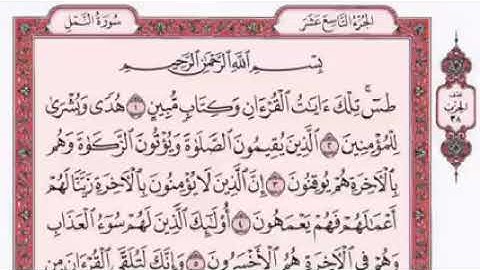 الجزء التاسع عشر
سورة النمل
بسم الله الرحمن الرحيم
طسٓ ۚ تِلْكَ ءَايَٰتُ ٱلْقُرْءَانِ وَكِتَابٍ مُّبِينٍ ۝١ هُدًى وَبُشْرَىٰ
لِلْمُؤْمِنِينَ ۝٢ ٱلَّذِينَ يُقِيمُونَ ٱلصَّلَوٰةَ وَيُؤْتُونَ ٱلزَّكَوٰةَ وَهُم
بِٱلْءَاخِرَةِ هُمْ يُوقِنُونَ ۝٣ إِنَّ ٱلَّذِينَ لَا يُؤْمِنُونَ بِٱلْءَاخِرَةِ زَيَّنَّا لَهُمْ
أَعْمَٰلَهُمْ فَهُمْ يَعْمَهُونَ ۝٤ أُو۟لَٰٓئِكَ ٱلَّذِينَ لَهُمْ سُوٓءُ ٱلْعَذَابِ
وَهُمْ فِى ٱلْءَاخِرَةِ هُمُ ٱلْأَخْسَرُونَ ۝٥ وَإِنَّكَ لَتُلَقَّى ٱلْقُرْءَانَ مِن
الحزب
٣٨